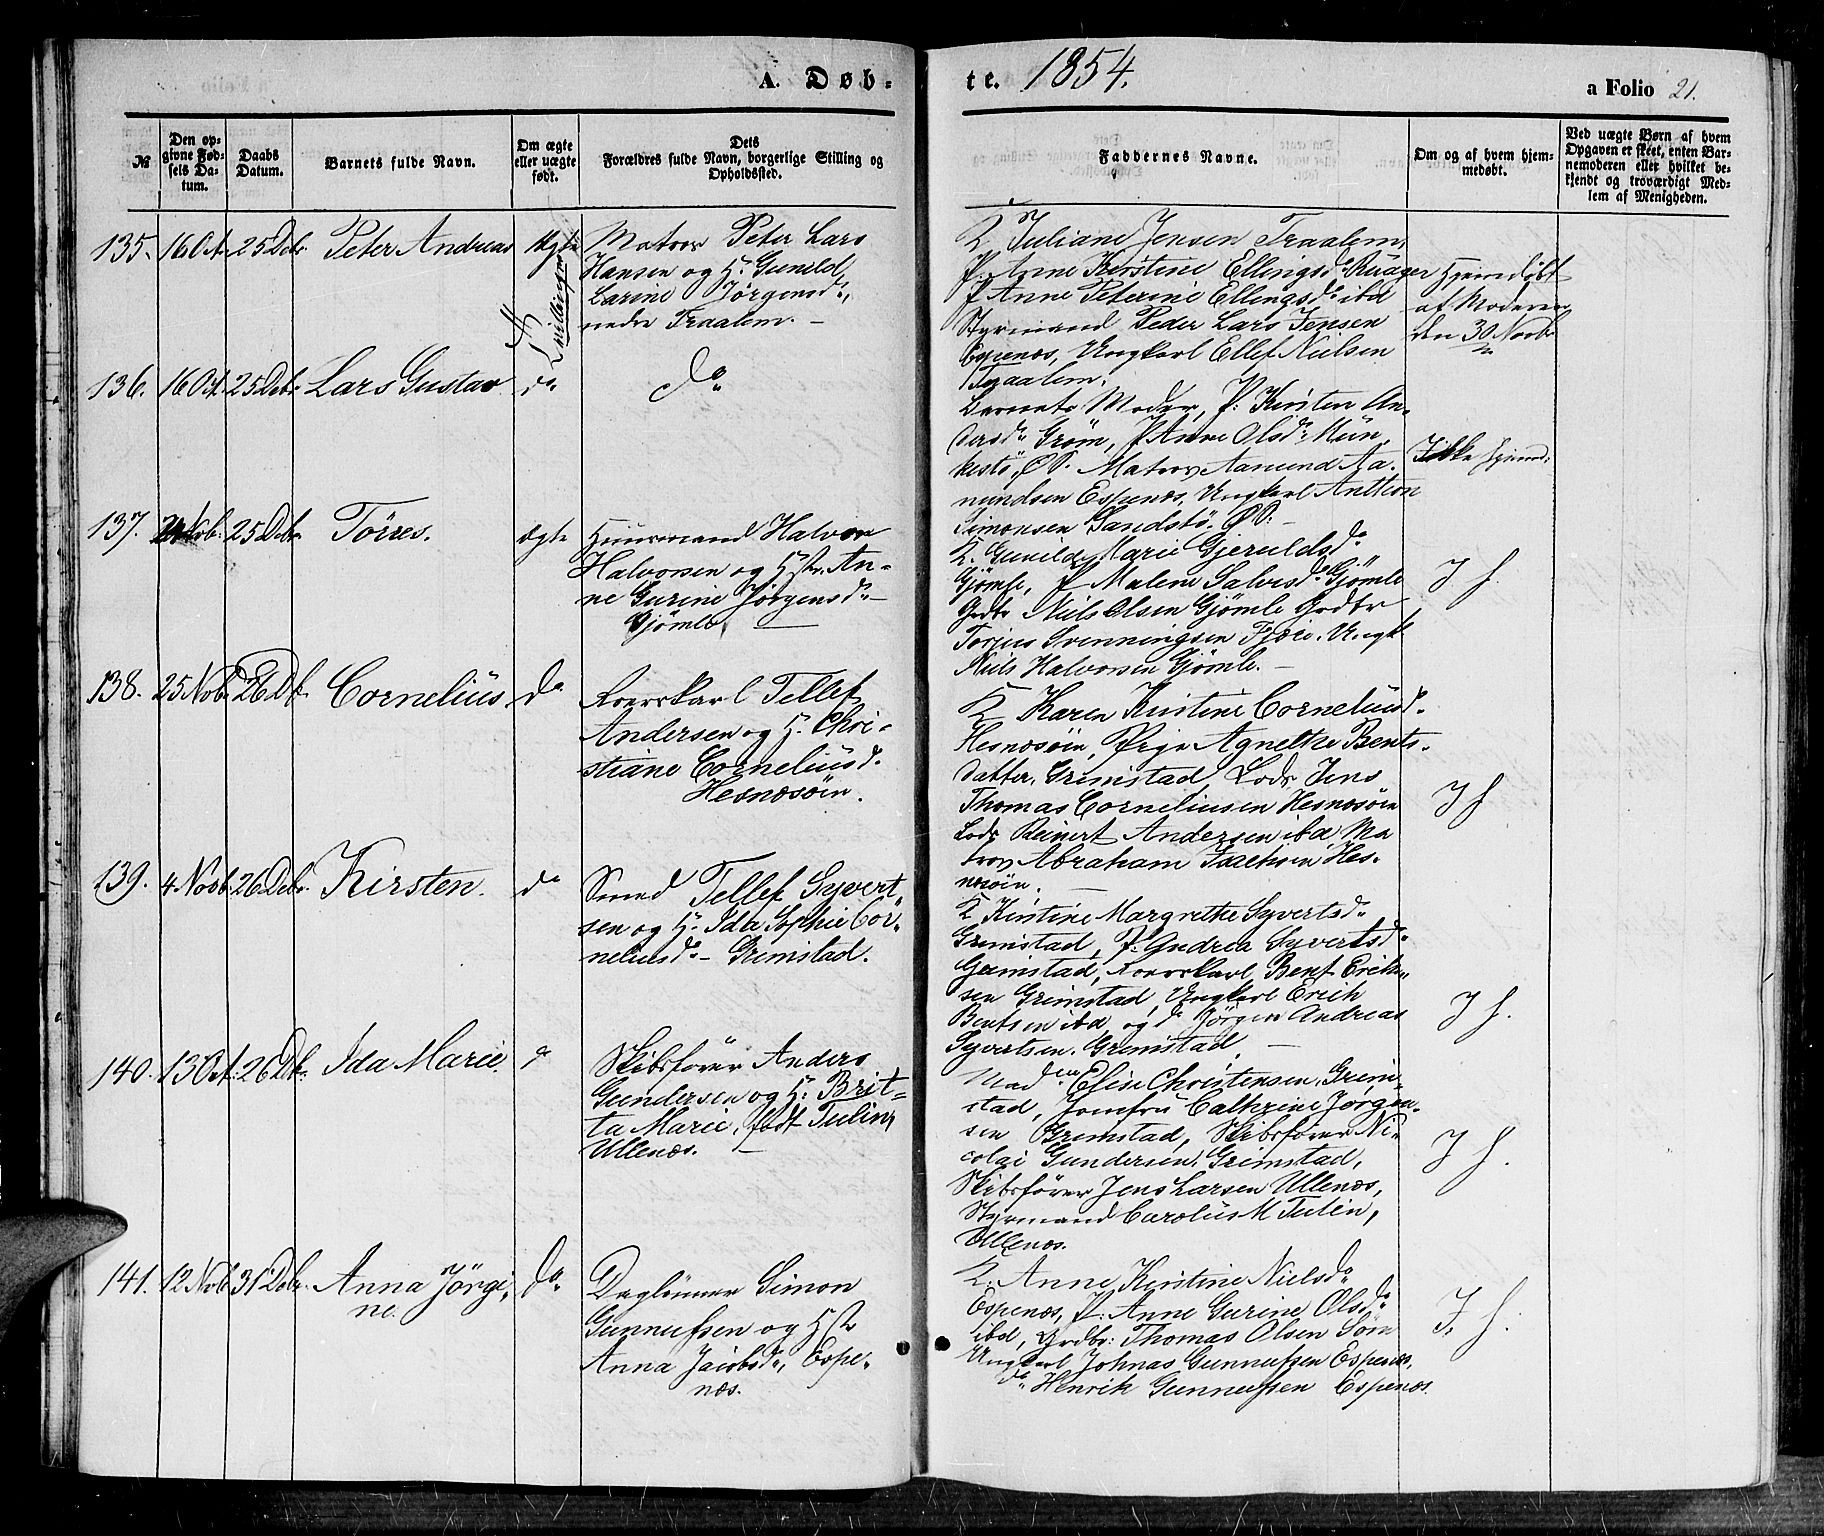 A. Døb-
te. 1854.
a Folio 21.
№
Den op-
givne Fød-
sels Da-
tum.
Daabs
Datum.
Barnets fulde Navn.
Om ægte
eller uægte
født.
Dets
Forældres fulde Navn, borgerlige Stilling og
Opholdssted.
Faddernes Navne.
Om og af hvem hjem-
medøbt.
Ved uægte Børn af hvem
Opgaven er skeet, enten Bar-
nemoderen eller hvilket be-
kjendt og troværdigt Med-
lem af Menigheden.
135. 16 Oct. 25 Debr. Peter Andreas ægte
Tvillinger
Matros Peter Lars
Hansen og H. Gunild
Larine Jørgensd.,
nedre Traalem. –
K Juliane Jensen Traalem,
P. Anne Kirstine Ellingsd.
P Anne Peterine Ellingsd. ibd
Styrmand Peder Lars Jensen
Espenæs, Ungkarl Ellef Nielsen
Traalem.
Hjemdøbt
af Moderen
den 30 Novbr
136. 16 Oct. 25 Debr. Lars Gustav do
do
Barnets Moder, P: Kirsten An-
dersd. Grøm, P Anne Olsd.
Ø.S. Matros Aamund Aa-
mundsen Espenæs, Ungkarl Anthon
Simonsen Sandstø. Ø.S: –
Ikke hjemd:
137. Nob. 25 Debr. Tørres. ægte
Huusmand Halvor
Halvorsen og Hst. An-
ne Gurine Jørgensd. –
Gjømle. –
K. Gunilde Marie Gjeruldsd.
Gjømle, P Malene Salvesd. Gjømle
Grdbr Niels Olsen Gjømle Grdbr
Torjus Svenningsen Fjære. Ungk
Niels Halvorsen Gjømle. –
I h.
138. 25 Nobr. 26 Db. Cornelius do
Rorskarl Tellef
Andersen og H. Chri-
stiane Corneliusd.
Hesnæsøen.
K Karen Kirstine Corneliusd.
Hesnæsøin, Pige Agnethe Bents-
datter, Grimstad, Lods Jens
Thomas Corneliusen Hesnæsøen
Lods Reinert Andersen ibd, Ma
tros Abraham Isachsen Hes-
næsøin. –
I h
139. 4 Novb. 26 Debr. Kirsten. do
Smed Tellef Syvert-
sen og H. Ida Sophie Cor-
neliusd. – Grimstad.
K Kirstine Margrethe Syvertsd.
Grimstad, P: Andrea Syvertsd.
Grimstad, Rorskarl Bent Erich-
sen Grimstad, Ungkarl Erich
Bentsen ibd, og do Jørgen Andreas
Syvertsen. Grimstad. –
I h.
140. 13 Oct. 26 Db. Ida Marie. do
Skibsfører Anders
Gundersen og H. Brit-
ta Marie, født Tulin,
Ullenæs. –
Madm Elise Christensen, Grim-
stad, Jomfru Cathrine Jørgen-
sen Grimstad, Skibsfører Ni-
colai Gundersen, Grimstad,
Skibsfører Jens Larsen Ullenæs,
Styrmand Carolus M Tulin,
Ullenæs.
I h.
141. 12 Nob. 31 Debr. Anna Jørgi-
ne. do
Daglønner Simon
Gunnufsen og Hst
Anna Jacobsd., Espe-
næs.
K. Anne Kirstine Nielsd.
Espenæs, P: Anne Gurine Olsd.
ibd, Grdbr: Thomas Olsen Søm
Ungkarl Johnas Gunnufsen Espenæs,
do Henrik Gunnufsen Espenæs.
I. h.